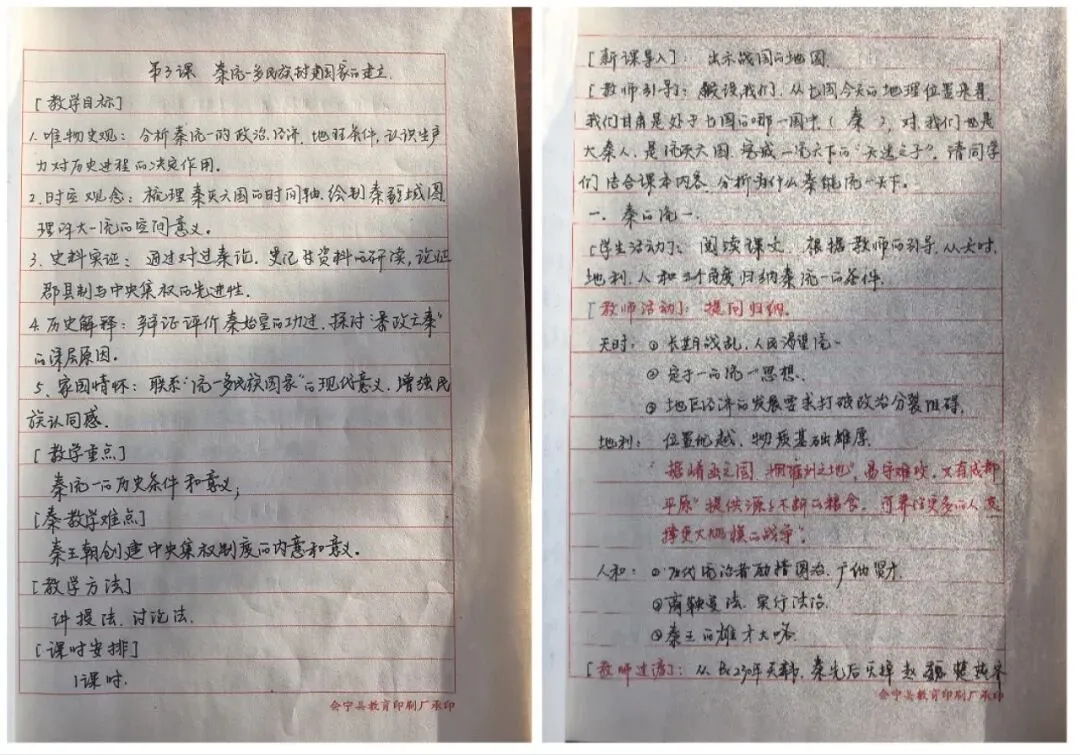 第3课 秦统一多民族封建国家的建立.
[教学目标]
1.唯物史观：分析秦统一的政治、经济、地理条件,认识生产
力对历史进程的决定作用.
2.时空观念：梳理秦灭六国的时间轴.绘制秦疆域图
理解大一统的空间意义.
3.史料实证：通过对过秦论.史记等资料的研读,论证
郡县制与中央集权的先进性.
4.历史解释：辩证评价秦始皇的功过,探讨"暴政亡秦"
的深层原因.
5、家国情怀：联系"统一多民族国家"的现代意义.增强民
族认同感.
[教学重点]
秦统一的历史条件和意义;
[秦教学难点]
秦王朝创建中央集权制度的内意和意义.
[教学方法]
讲授法.讨论法.
[课时安排]
1课时.
会宁县教育印刷厂承印
[新课导入]：出示战国的地图.
[教师引导]：假设我们.从七国今天的地理位置来看.
我们甘肃是处于七国的哪一国中(秦).对.我们也是
大秦人.是统灭六国.完成一统天下的"天选之子".请同学
们结合课本内容.分析为什么秦能统一天下.
一.秦的统一.
[学生活动]：阅读课文.根据教师的引导.从天时.
地利.人和3个角度归纳秦统一的条件.
[教师活动]：提问归纳.
天时：①长期战乱.人民渴望统一
②定于一的统一思想.
③地区经济的发展要求打破政治分裂阻碍.
地利：位置优越.物质基础雄厚.
"据崤函之固 拥雍州之地".易守难攻.又有"成都
平原"提供源源不断的粮食.可养活更多的人支
撑更大规模的战争".
人和：①历代统治者励精图治.广纳贤才.
②商鞅变法.实行法治.
③秦王的雄才大略.
[教师过渡]：从 BC230年灭韩.秦先后灭掉 赵 魏 楚 燕 齐
会宁县教育印刷厂承印